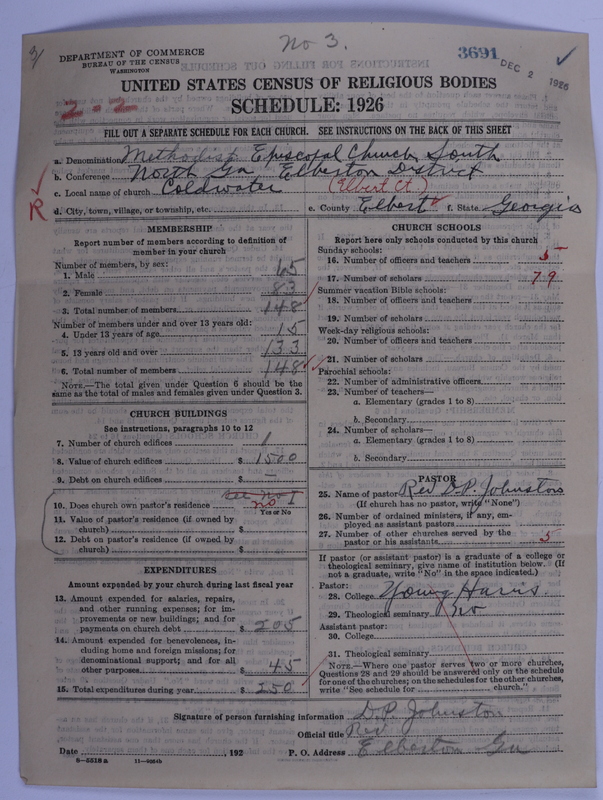 No 3.
3691
DEC 2 1926
DEPARTMENT OF COMMERCE
BUREAU OF THE CENSUS
WASHINGTON
UNITED STATES CENSUS OF RELIGIOUS BODIES
2-2
SCHEDULE: 1926
FILL OUT A SEPARATE SCHEDULE FOR EACH CHURCH. SEE INSTRUCTIONS ON THE BACK OF THIS SHEET
a. Denomination Methodist Episcopal Church South
b. Conference North Ga Elberton District
c. Local name of church Coldwater (Elbert Ct.)
R
d. City, town, village, or township, etc. e. County Elbert f. State Georgia
MEMBERSHIP
Report number of members according to definition of
member in your church
Number of members, by sex:
1. Male 65
2. Female 83
3. Total number of members 148
Number of members under and over 13 years old:
4. Under 13 years of age 15
5. 13 years old and over 133
6. Total number of members 148
NOTE.—The total given under Question 6 should be the
same as the total of males and females given under Question 3.
CHURCH BUILDINGS
See instructions, paragraphs 10 to 12
7. Number of church edifices 1
8. Value of church edifices $ 1500
9. Debt on church edifices $ —
See No I
10. Does church own pastor's residence no
Yes or No
11. Value of pastor's residence (if owned by
church) $
12. Debt on pastor's residence (if owned by
church) $
EXPENDITURES
Amount expended by your church during last fiscal year
13. Amount expended for salaries, repairs,
and other running expenses; for im-
provements or new buildings; and for
payments on church debt $ 205
14. Amount expended for benevolences, in-
cluding home and foreign missions; for
denominational support; and for all
other purposes $ 45
15. Total expenditures during year $ 250
CHURCH SCHOOLS
Report here only schools conducted by this church
Sunday schools:
16. Number of officers and teachers 5
17. Number of scholars 79
Summer vacation Bible schools:
18. Number of officers and teachers
19. Number of scholars
Week-day religious schools:
20. Number of officers and teachers
21. Number of scholars
Parochial schools:
22. Number of administrative officers
23. Number of teachers—
a. Elementary (grades 1 to 8)
b. Secondary
24. Number of scholars—
a. Elementary (grades 1 to 8)
b. Secondary
PASTOR
25. Name of pastor Rev D.P. Johnston
(If church has no pastor, write "None")
26. Number of ordained ministers, if any, em-
ployed as assistant pastors
27. Number of other churches served by the
pastor or his assistants 5
If pastor (or assistant pastor) is a graduate of a college or
theological seminary, give name of institution below. (If
not a graduate, write "No" in the space indicated.)
Pastor:
28. College Young Harris
29. Theological seminary No
Assistant pastor:
30. College
31. Theological seminary
NOTE.—Where one pastor serves two or more churches,
Questions 28 and 29 should be answered only on the schedule
for one of the churches; on the schedules for the other churches,
write "See schedule for church."
Signature of person furnishing information D.P. Johnston
Official title Rev
Date , 192 P. O. Address Elberton Ga
8—5518a 11—9064b